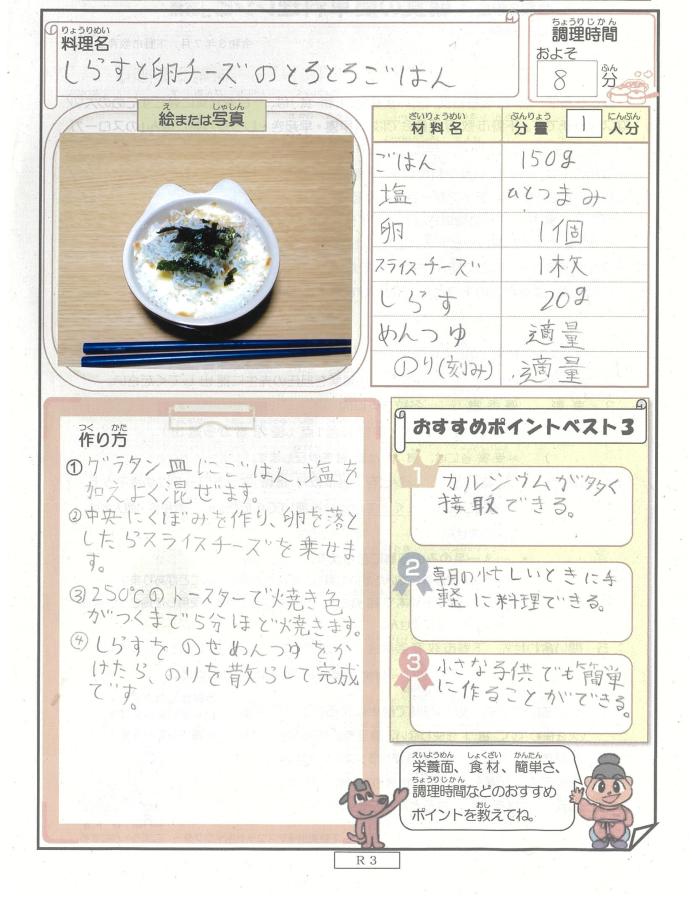 料理名
しらすと卵チーズのとろとろごはん
調理時間
およそ
8分
絵または写真
材料名 分量 1 人分
ごはん 150g
塩 ひとつまみ
卵 1個
スライスチーズ 1枚
しらす 20g
めんつゆ 適量
のり(刻み) 適量
作り方
①グラタン皿にごはん、塩を
加えよく混ぜます。
②中央にくぼみを作り、卵を落と
したらスライスチーズを乗せま
す。
③250℃のトースターで焼き色
がつくまで5分ほど焼きます。
④しらすをのせめんつゆをか
けたら、のりを散らして完成
です。
おすすめポイントベスト3
1
カルシウムが多く
接取できる。
2
朝の忙しいときに手
軽に料理できる。
3
小さな子供でも簡単
に作ることができる。
栄養面、食材、簡単さ、
調理時間などのおすすめ
ポイントを教えてね。
R3